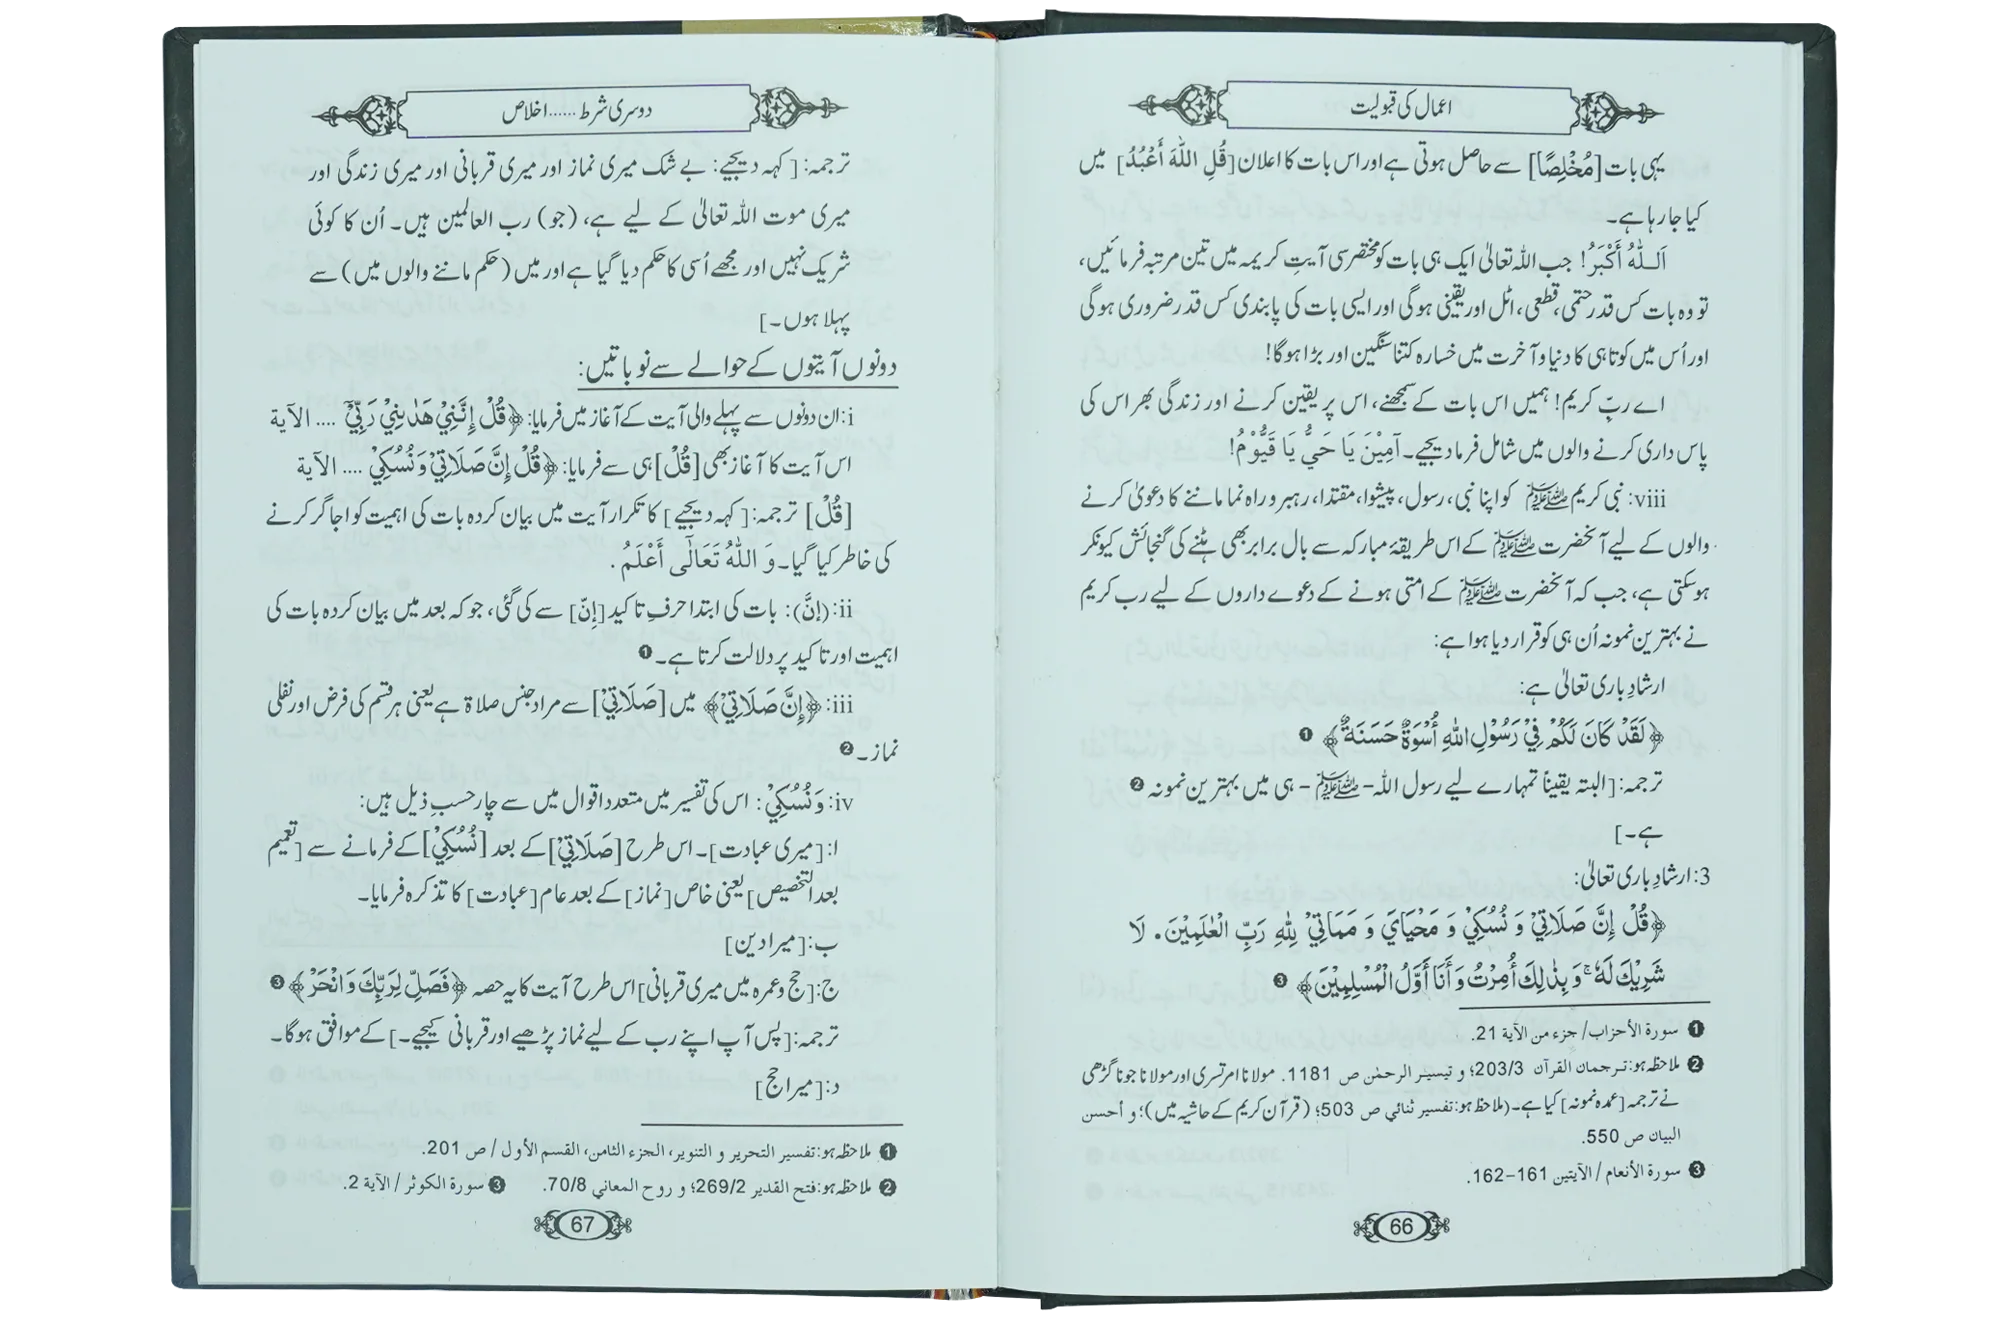 اعمال کی قبولیت
یہی بات [مُخْلِصًا] سے حاصل ہوتی ہے اور اس بات کا اعلان [قُلِ اللّٰهَ أَعْبُدُ] میں
کیا جا رہا ہے۔
اَللّٰهُ أَكْبَرُ! جب اللہ تعالیٰ ایک ہی بات کو مختصر سی آیتِ کریمہ میں تین مرتبہ فرمائیں،
تو وہ بات کس قدر حتمی، قطعی، اٹل اور یقینی ہوگی اور ایسی بات کی پابندی کس قدر ضروری ہوگی
اور اُس میں کوتاہی کا دنیا و آخرت میں خسارہ کتنا سنگین اور بڑا ہوگا!
اے ربِّ کریم! ہمیں اس بات کے سمجھنے، اس پر یقین کرنے اور زندگی بھر اس کی
پاس داری کرنے والوں میں شامل فرما دیجیے۔ آمِيْنَ يَا حَيُّ يَا قَيُّوْمُ!
viii: نبی کریم ﷺ کو اپنا نبی، رسول، پیشوا، مقتدا، رہبر و راہ نما ماننے کا دعویٰ کرنے
والوں کے لیے آنحضرت ﷺ کے اس طریقۂ مبارکہ سے بال برابر بھی ہٹنے کی گنجائش کیونکر
ہوسکتی ہے، جب کہ آنحضرت ﷺ کے امتی ہونے کے دعوے داروں کے لیے رب کریم
نے بہترین نمونہ اُن ہی کو قرار دیا ہوا ہے:
ارشادِ باری تعالیٰ ہے:
﴿لَقَدْ كَانَ لَكُمْ فِيْ رَسُوْلِ اللّٰهِ أُسْوَةٌ حَسَنَةٌ﴾ ❶
ترجمہ: [البتہ یقیناً تمہارے لیے رسول اللہ - ﷺ - ہی میں بہترین نمونہ ❷
ہے۔]
3: ارشادِ باری تعالیٰ:
﴿قُلْ إِنَّ صَلَاتِيْ وَ نُسُكِيْ وَ مَحْيَايَ وَ مَمَاتِيْ لِلّٰهِ رَبِّ الْعٰلَمِيْنَ. لَا
شَرِيْكَ لَهٗ ۚ وَ بِذٰلِكَ أُمِرْتُ وَ أَنَا أَوَّلُ الْمُسْلِمِيْنَ﴾ ❸
❶ سورة الأحزاب/ جزء من الآية 21.
❷ ملاحظہ ہو: ترجمان القرآن 203/3؛ و تيسير الرحمٰن ص 1181. مولانا امرتسری اور مولانا جونا گڑھی
نے ترجمہ [عمدہ نمونہ] کیا ہے۔ (ملاحظہ ہو: تفسیر ثنائي ص 503؛ (قرآن کریم کے حاشیہ میں)؛ و أحسن
البيان ص 550.
❸ سورة الأنعام / الآيتين 161-162.
66
دوسری شرط ...... اخلاص
ترجمہ: [کہہ دیجیے: بے شک میری نماز اور میری قربانی اور میری زندگی اور
میری موت اللہ تعالیٰ کے لیے ہے، (جو) رب العالمین ہیں۔ اُن کا کوئی
شریک نہیں اور مجھے اُسی کا حکم دیا گیا ہے اور میں (حکم ماننے والوں میں) سے
پہلا ہوں۔]
دونوں آیتوں کے حوالے سے نو باتیں:
i: ان دونوں سے پہلے والی آیت کے آغاز میں فرمایا: ﴿قُلْ إِنَّنِيْ هَدٰىنِيْ رَبِّيْٓ .... الآية
اس آیت کا آغاز بھی [قُلْ] ہی سے فرمایا: ﴿قُلْ إِنَّ صَلَاتِيْ وَ نُسُكِيْ .... الآية
[قُلْ] ترجمہ: [کہہ دیجیے] کا تکرار آیت میں بیان کردہ بات کی اہمیت کو اجاگر کرنے
کی خاطر کیا گیا۔ وَ اللّٰهُ تَعَالٰٓى أَعْلَمُ.
ii: (إِنَّ): بات کی ابتدا حرفِ تاکید [إِنّ] سے کی گئی، جو کہ بعد میں بیان کردہ بات کی
اہمیت اور تاکید پر دلالت کرتا ہے۔ ❶
iii: ﴿إِنَّ صَلَاتِيْ﴾ میں [صَلَاتِيْ] سے مراد جنس صلاۃ ہے یعنی ہر قسم کی فرض اور نفلی
نماز۔ ❷
iv: وَ نُسُكِيْ: اس کی تفسیر میں متعدد اقوال میں سے چار حسبِ ذیل ہیں:
ا: [میری عبادت]۔ اس طرح [صَلَاتِيْ] کے بعد [نُسُكِيْ] کے فرمانے سے [تعمیم
بعد التخصیص] یعنی خاص [نماز] کے بعد عام [عبادت] کا تذکرہ فرمایا۔
ب: [میرا دین]
ج: [حج و عمرہ میں میری قربانی] اس طرح آیت کا یہ حصہ ﴿فَصَلِّ لِرَبِّكَ وَ انْحَرْ﴾ ❸
ترجمہ: [پس آپ اپنے رب کے لیے نماز پڑھیے اور قربانی کیجیے۔] کے موافق ہوگا۔
د: [میرا حج]
❶ ملاحظہ ہو: تفسير التحرير و التنوير، الجزء الثامن، القسم الأول / ص 201.
❷ ملاحظہ ہو: فتح القدير 269/2؛ و روح المعاني 70/8. ❸ سورة الكوثر / الآية 2.
67